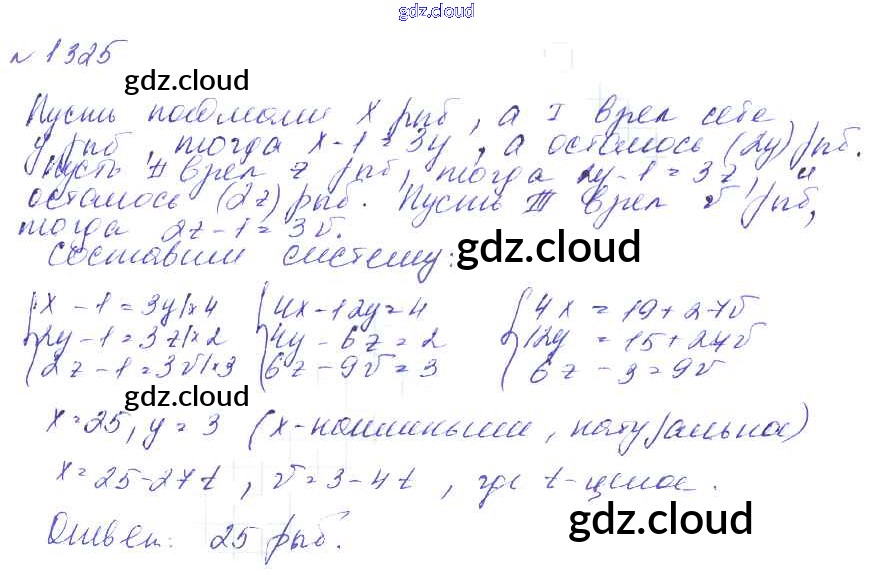 gdz.cloud
№ 1325
gdz.cloud
Пусть поймали x рыб, а I взял себе
y рыб, тогда x - 1 = 3y, а осталось (2y) рыб.
Пусть II взял z рыб, тогда 2y - 1 = 3z, и
осталось (2z) рыб. Пусть III взял v рыб,
тогда 2z - 1 = 3v.
gdz.cloud
Составим систему:
{x - 1 = 3y |×4 {4x - 12y = 4 {4x = 19 + 27v
{2y - 1 = 3z |×2 {4y - 6z = 2 {12y = 15 + 24v
{2z - 1 = 3v |×3 {6z - 9v = 3 {6z - 3 = 9v
gdz.cloud
x = 25, y = 3 (x - наименьшим, натуральное)
x = 25 - 27t, v = 3 - 4t, где t - целое.
gdz.cloud
Ответ: 25 рыб.